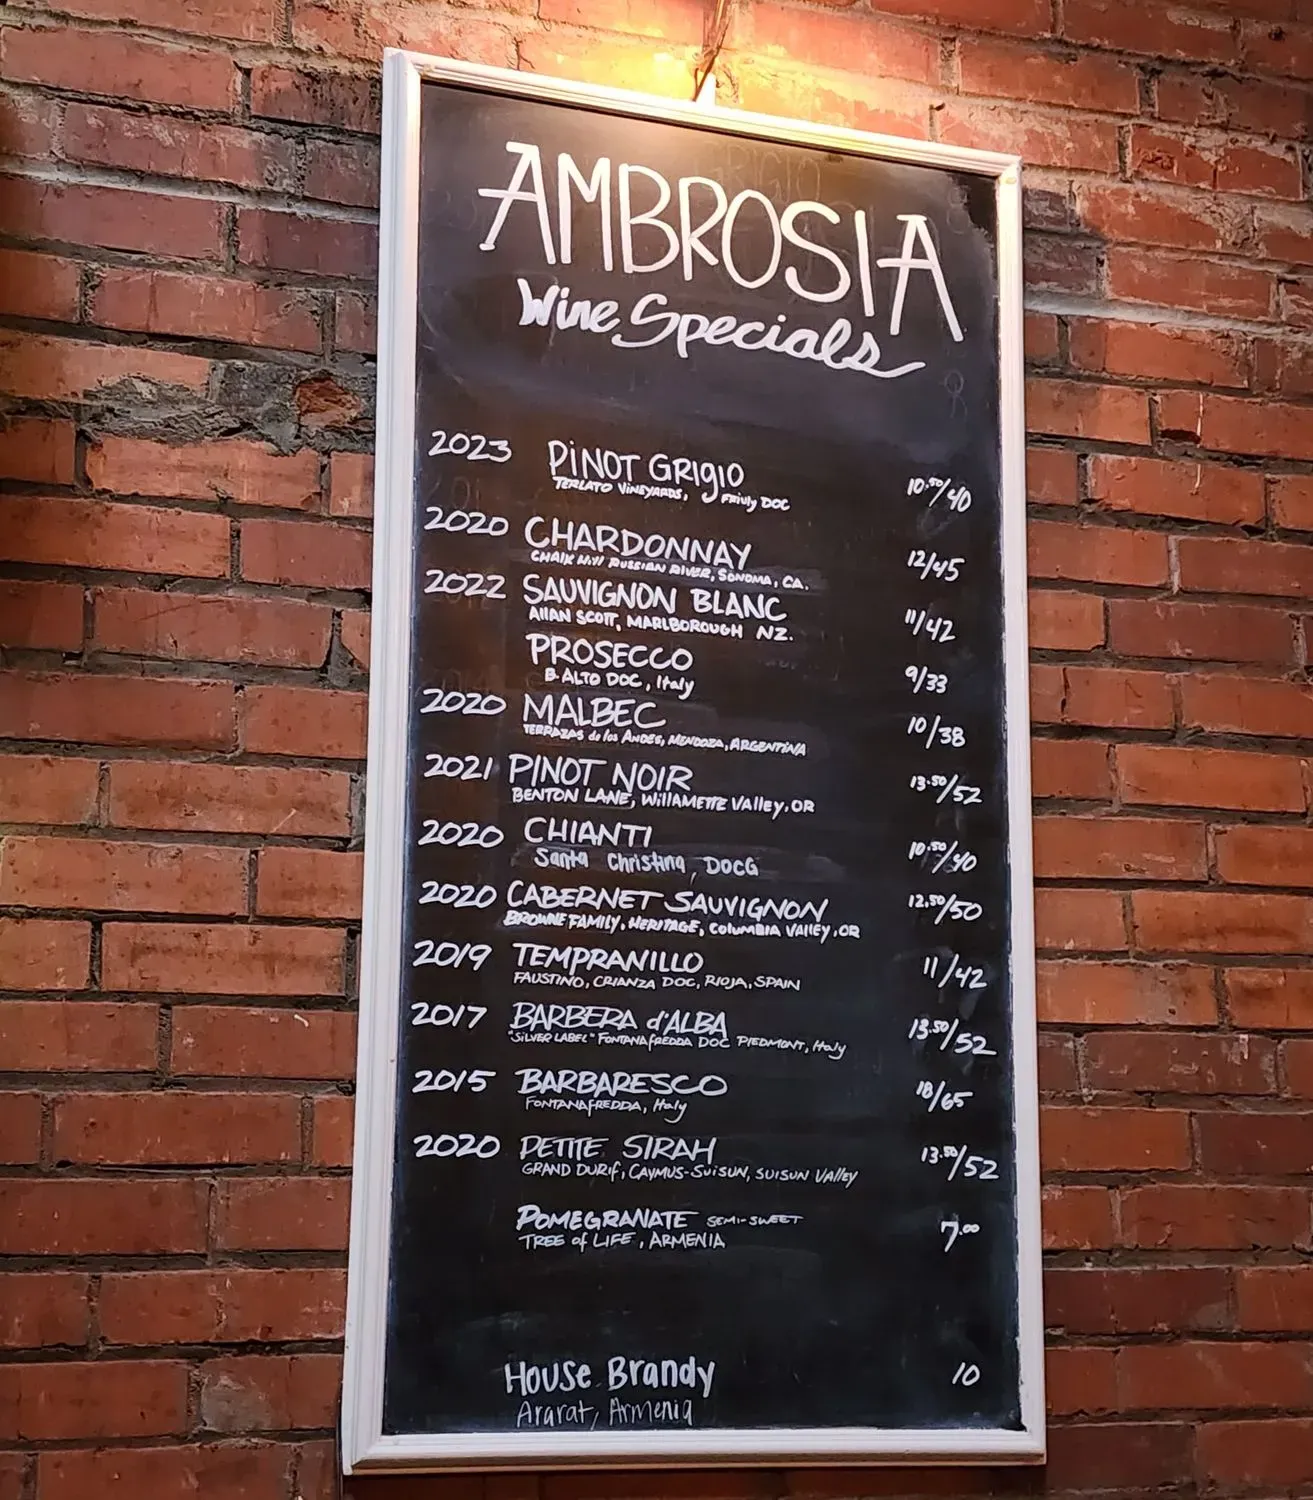 AMBROSIA
Wine Specials
2023 PINOT GRIGIO 10.50/40
TERLATO VINEYARDS, FRIULY DOC
2020 CHARDONNAY 12/45
CHALK HILL RUSSIAN RIVER, SONOMA, CA.
2022 SAUVIGNON BLANC 11/42
ALLAN SCOTT, MARLBOROUGH NZ.
PROSECCO 9/33
B. ALTO DOC, Italy
2020 MALBEC 10/38
TERRAZAS de los ANDES, MENDOZA, ARGENTINA
2021 PINOT NOIR 13.50/52
BENTON LANE, WillAMETTE Valley, OR
2020 CHIANTI 10.50/40
Santa Christina, DOCG
2020 CABERNET SAUVIGNON 12.50/50
BROWNE FAMILY, HERITAGE, COLUMBIA VALLEY, OR
2019 TEMPRANILLO 11/42
FAUSTINO, CRIANZA DOC, RIOJA, SPAIN
2017 BARBERA d'ALBA 13.50/52
"SILVER LABEL" FONTANAfREDDA DOC PIEDMONT, Italy
2015 BARBARESCO 18/65
FONTANAfREDDA, Italy
2020 PETITE SIRAH 13.50/52
GRAND DURIf, CAYMUS-SUISUN, SUISUN VAlley
POMEGRANATE SEMI-SWEET 7.00
TREE of LIFE, ARMENIA
House Brandy 10
Ararat, Armenia